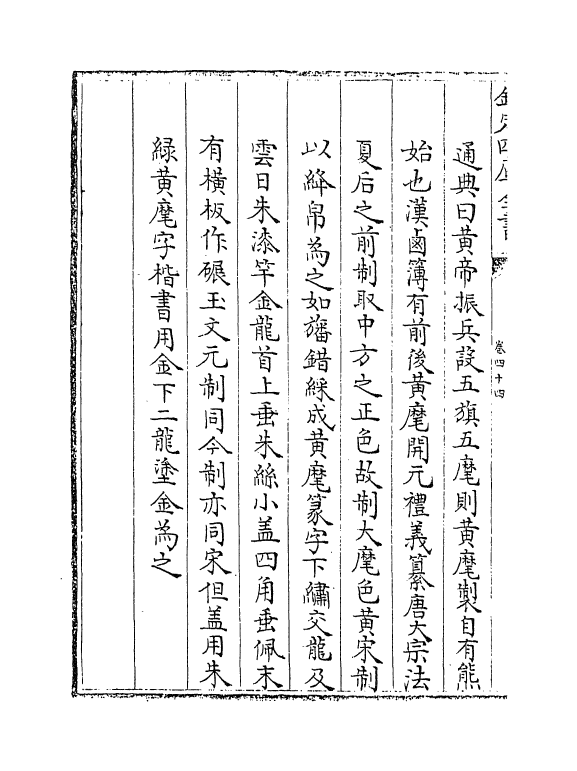 欽定四庫全書
卷四十四
通典曰黃帝振兵設五旗五麾則黃麾製自有熊
始也漢鹵簿有前後黃麾開元禮義纂唐太宗法
夏后之前制取中方之正色故制大麾色黃宋制
以絳帛為之如旛錯綵成黃麾篆字下繡交龍及
雲日朱漆竿金龍首上垂朱絲小盖四角垂佩末
有橫板作碾玉文元制同今制亦同宋但盖用朱
綠黃麾字楷書用金下二龍塗金為之